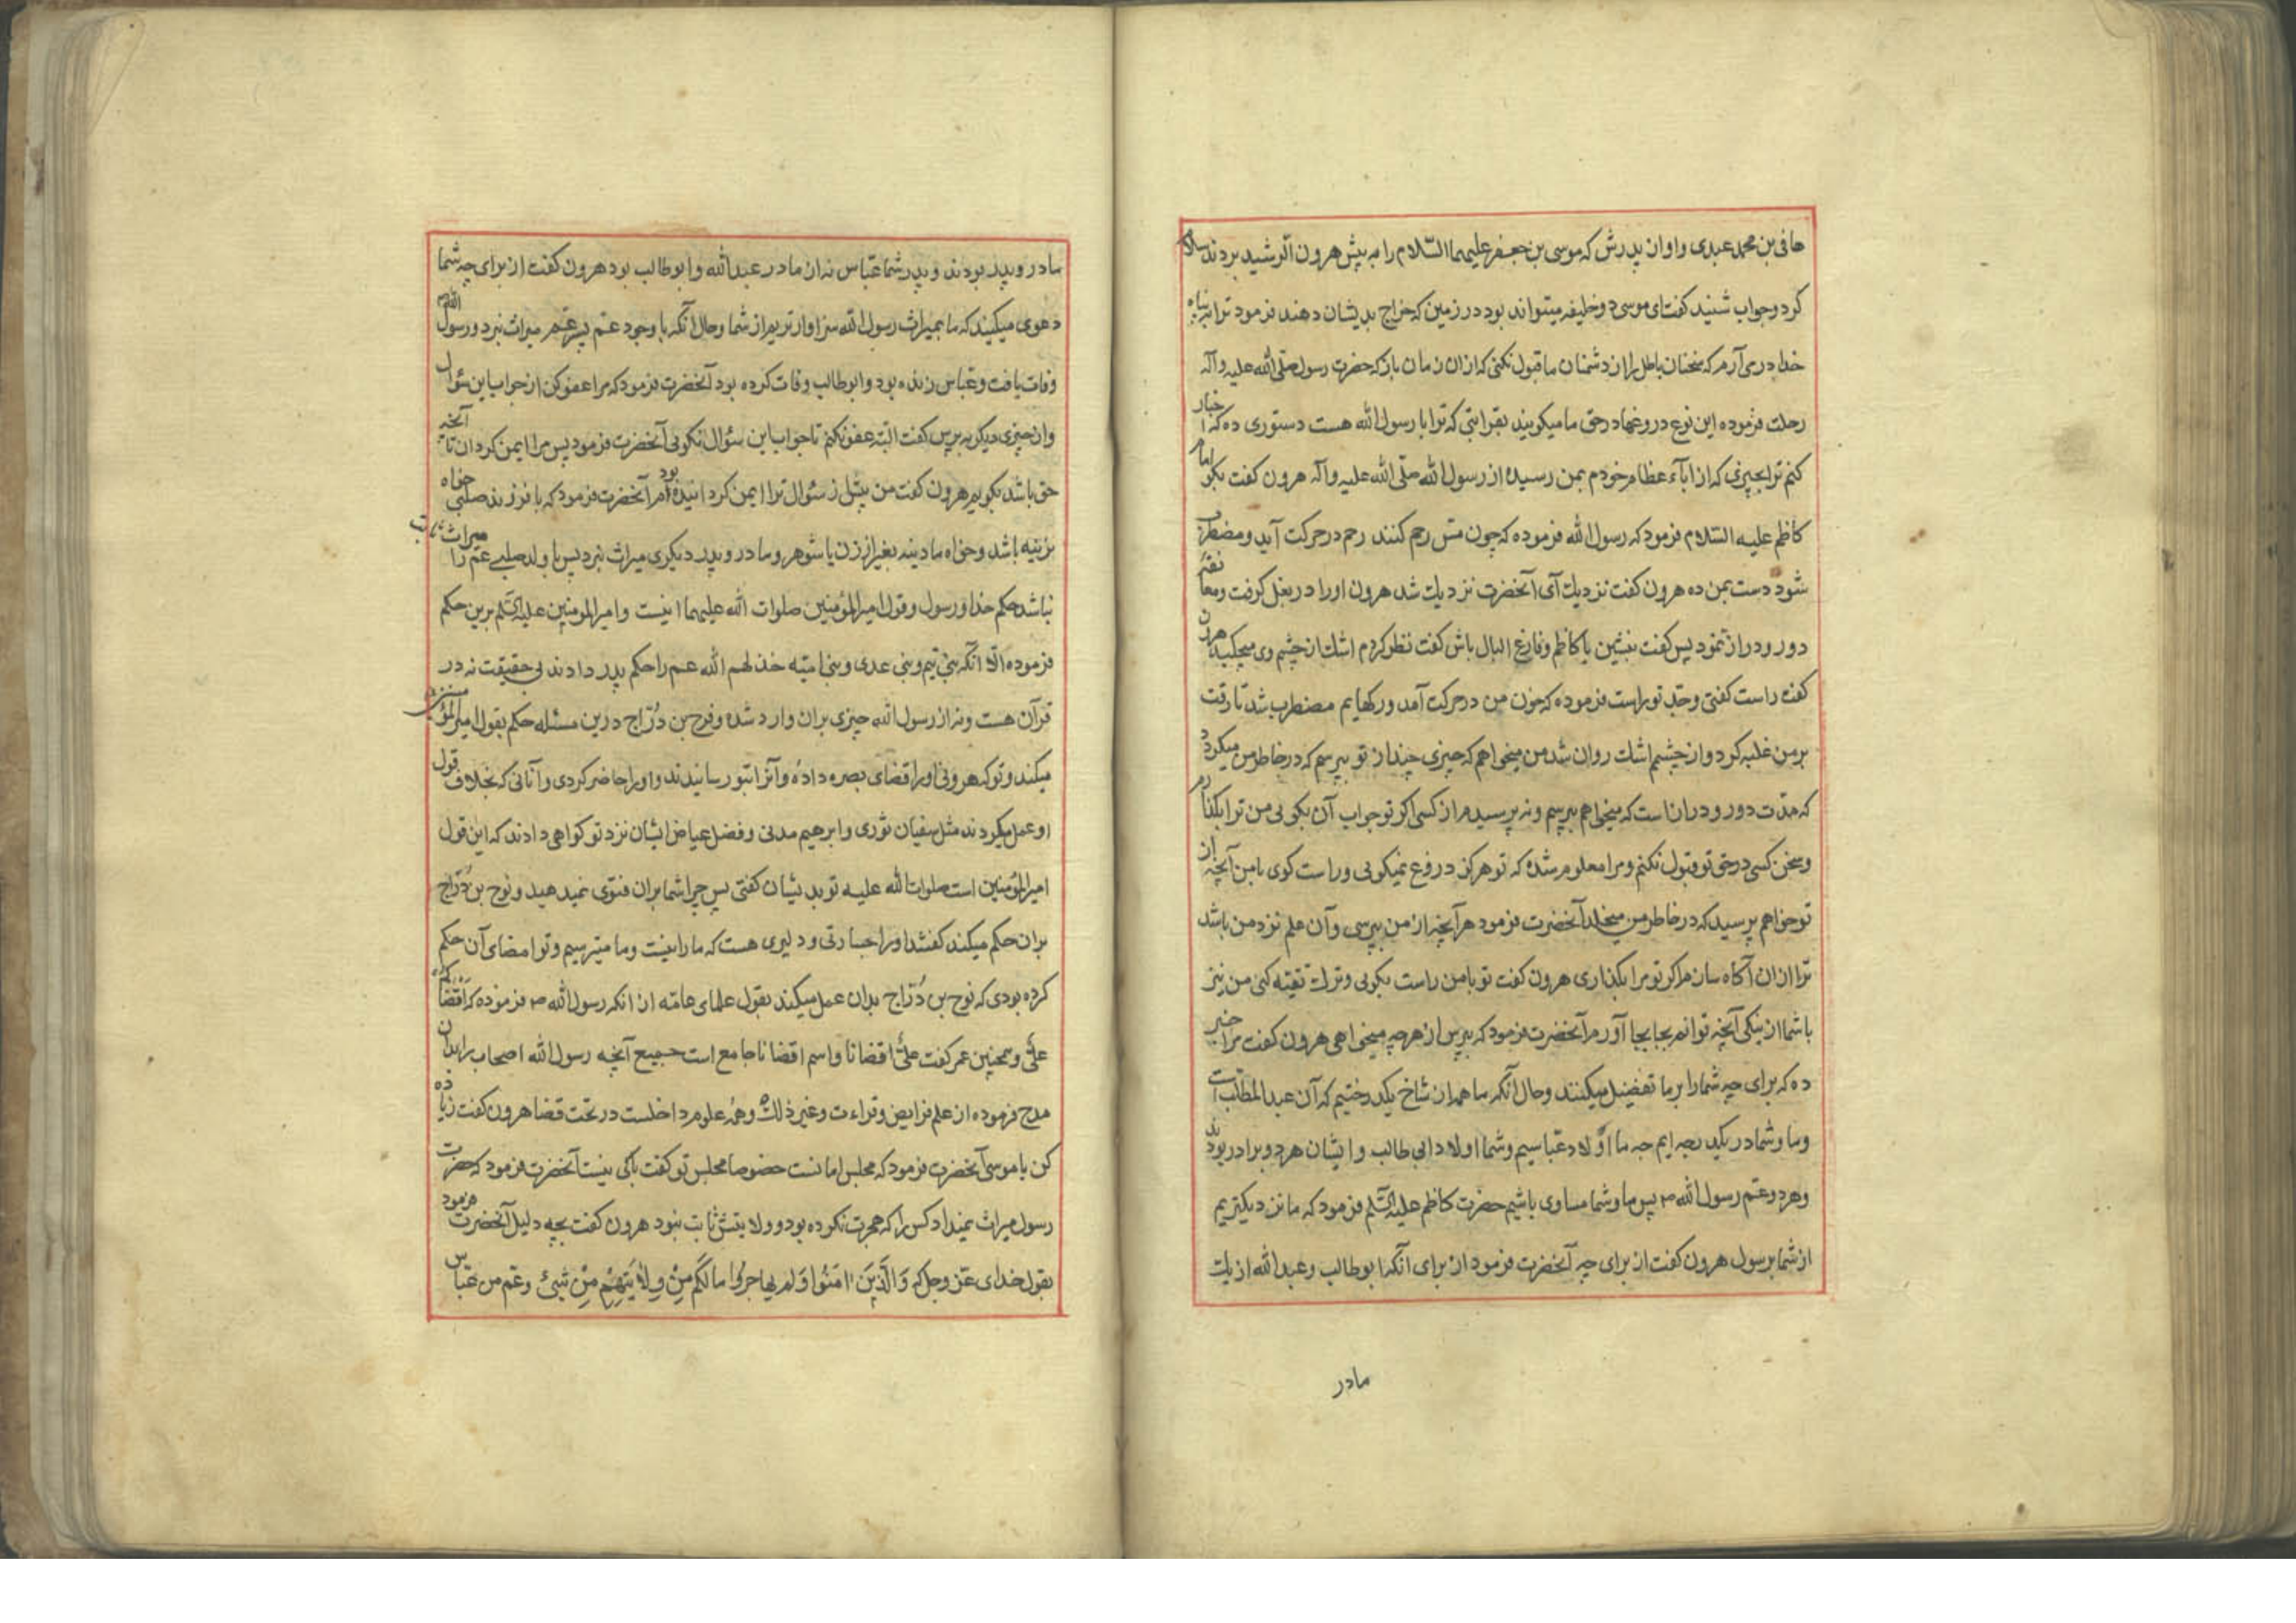 هانی بن محمد عبدی و او از پدرش که موسی بن جعفر علیهما السّلام را به پیش هرون الرشید بردند سلام
کرد و جواب شنید گفت ای موسی دو خلیفه میتواند بود در زمین که خراج بدیشان دهند فرمود ترا به پناه
خدا در می آرم که سخنان باطل را از دشمنان ما قبول نکنی که از ان زمان باز که حضرت رسول صلّی الله علیه و آله
رحلت فرموده این نوع دروغها در حق ما میکویند بقرابتی که ترا با رسول الله هست دستوری ده که اخبار
کنم ترا بچیزی که از اباء عظام خودم بمن رسیده از رسول الله صلّی الله علیه و آله هرون کفت بکو امام
کاظم علیه السّلام فرمود که رسول الله فرموده که چون مسّ رحم کنند رحم در حرکت آید و مضطرب
شود دست بمن ده هرون کفت نزدیك آی آنحضرت نزدیك شد هرون او را در بغل کرفت و معانقهٔ
دور و دراز نمود پس کفت بنشین یا کاظم و فارغ البال باش کفت نظر کردم اشك از چشم وی میچکید هرون
کفت راست کفتی و جدّ تو راست فرموده که خون من در حرکت آمد و رکهایم مضطرب شد تا رقت
بر من غلبه کرد و از چشمم اشك روان شد من میخواهم که چیزی چند از تو بپرسم که در خاطر من میکردد
که مدّت دور و دراز است که میخواهم بپرسم و نه پرسیدم از کسی اکر تو جواب آن بکویی من ترا بکذارم
و سخن کسی در حق تو قبول نکنم و مرا معلوم شده که تو هرکز دروغ نمیکویی و راست کوی با من آنچه از
تو خواهم پرسید که در خاطر من میخلد آنحضرت فرمود هر آنچه از من بپرسی و آن علم نزد من باشد
ترا از ان آکاه سازم اکر تو مرا بکذاری هرون کفت تو با من راست بکویی و ترك تقیّه کنی من نیز
با شما از نیکی آنچه توانم بجا بجا آورم آنحضرت فرمود که بپرس از هر چه میخواهی هرون کفت مرا خبر
ده که برای چه شما را بر ما تفضیل میکنند و حال آنکه ما همه از شاخ یکدرختیم که آن عبد المطّلب است
و ما و شما در یکدرجه ایم چه ما اولاد عبّاسیم و شما اولاد ابی طالب و ایشان هر دو برادر بودند
و هر دو عمّ رسول الله ص پس ما و شما مساوی باشیم حضرت کاظم علیه السّلم فرمود که ما نزدیکتریم
از شما برسول هرون کفت از برای چه آنحضرت فرمود از برای آنکه ابو طالب و عبد الله از یك
مادر
مادر و پدر بودند و پدر شما عبّاس نه از مادر عبد الله و ابو طالب بود هرون کفت از برای چه شما
دعوی میکنید که ما بمیراث رسول الله سزاوارتریم از شما و حال آنکه با وجود عمّ پسر عمّ میراث نبرد و رسول الله ص
وفات یافت و عبّاس زنده بود و ابو طالب وفات کرده بود آنحضرت فرمود که مرا عفو کن از جواب این سؤال
و از چیزی دیکر بپرس کفت البته عفو نکنم تا جواب این سؤال نکویی آنحضرت فرمود پس مرا ایمن کردان تا آنچه
حق باشد بکویم هرون کفت من پیش از سؤال ترا ایمن کردانیده بودم آنحضرت فرمود که با فرزند صلبی خواه
نرینه باشد و خواه مادینه بغیر از زن یا شوهر و مادر و پدر دیکری میراث نبرد پس با ولد صلبی عمّ را میراث ثابت
نباشد حکم خدا و رسول و قول امیر المؤمنین صلوات الله علیهما اینست و امیر المؤمنین علیه السّلم برین حکم
فرموده الّا آنکه بنی تیم و بنی عدی و بنی امیّه خذلهم الله عم را حکم پدر دادند بی حقیقت نه در
قرآن هست و نه از رسول الله چیزی بران وارد شده و نوح بن درّاج درین مسئله حکم بقول امیر المؤمنین
میکند و تو که هرونی او را قضای بصره داده و آنرا بتو رسانیدند و او را حاضر کردی و آنانی که بخلاف قول
او عمل میکردند مثل سفیان ثوری و ابرهیم مدنی و فضل عیاض ایشان نزد تو کواهی دادند که این قول
امیر المؤمنین است صلوات الله علیه تو بدیشان کفتی پس چرا شما بران فتوی نمیدهید و نوح بن درّاج
بران حکم میکند کفتند او را جسارتی و دلیری هست که ما را نیست و ما میترسیم و تو امضای آن حکم
کرده بودی که نوح بن درّاج بدان عمل میکند بقول علمای عامّه از انکه رسول الله ص فرموده که اقضاکم
علیّ و همچنین عمر کفت علیّ اقضانا و اسم اقضانا جامع است جمیع آنچه رسول الله اصحاب را بدان
مدح فرموده از علم فرایض و قراءت و غیر ذلك و همه علوم داخلست در تحت قضا هرون کفت زیاده
کن یا موسی آنحضرت فرمود که مجلس امانست خصوصا مجلس تو کفت باکی نیست آنحضرت فرمود که حضرت
رسول میراث نمیداد کس را که هجرت نکرده بود و ولایتش ثابت نبود هرون کفت بچه دلیل آنحضرت فرمود
بقول خدای عزّ و جل که وَالَّذِینَ امَنُوا وَلَم یهاجروُا مالَکُم مِنْ وِلایَتِهِمْ مِنْ شَیئٍ و عمّ من عبّاس